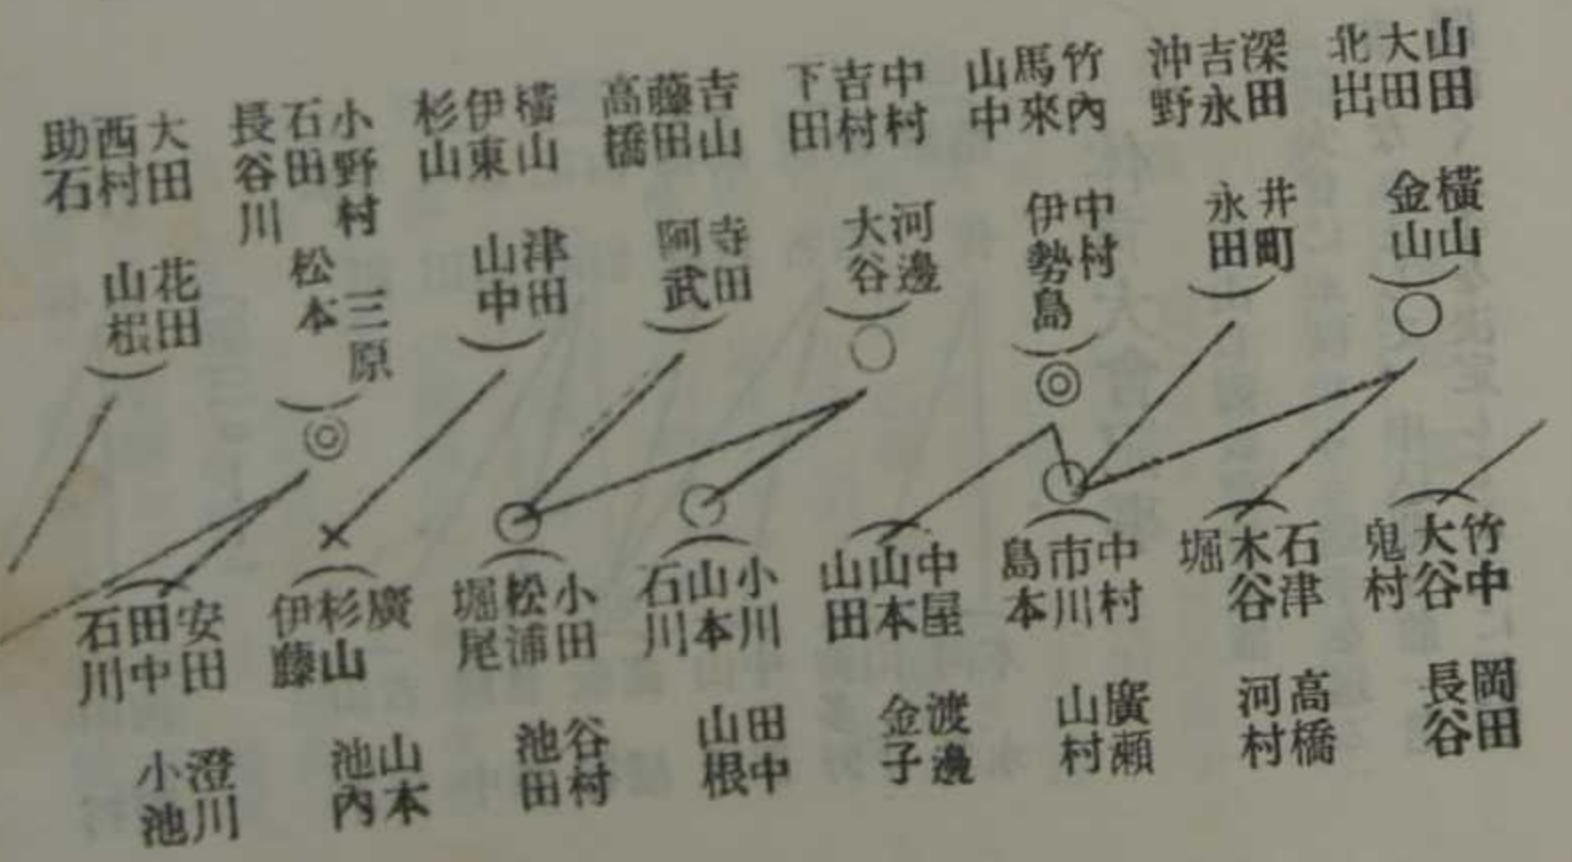 山田
大田
北出
深田
吉永
沖野
竹內
馬來
山中
中村
吉村
下田
吉山
藤田
高橋
橫山
伊東
杉山
小野村
石田
長谷川
大田
西村
助石
橫山
金山
井町
永田
中村
伊勢島
河邊
大谷
寺田
阿武
津田
山中
三原
松本
花田
竹中
大谷
鬼村
石津
木谷
堀
中村
市川
島本
中屋
山本
山田
小川
山本
石川
小田
松浦
堀尾
廣
杉山
伊藤
安田
田中
石川
岡田
長谷
高橋
河村
廣瀬
山村
渡邊
金子
田中
山根
谷村
池田
山本
池內
澄川
小池